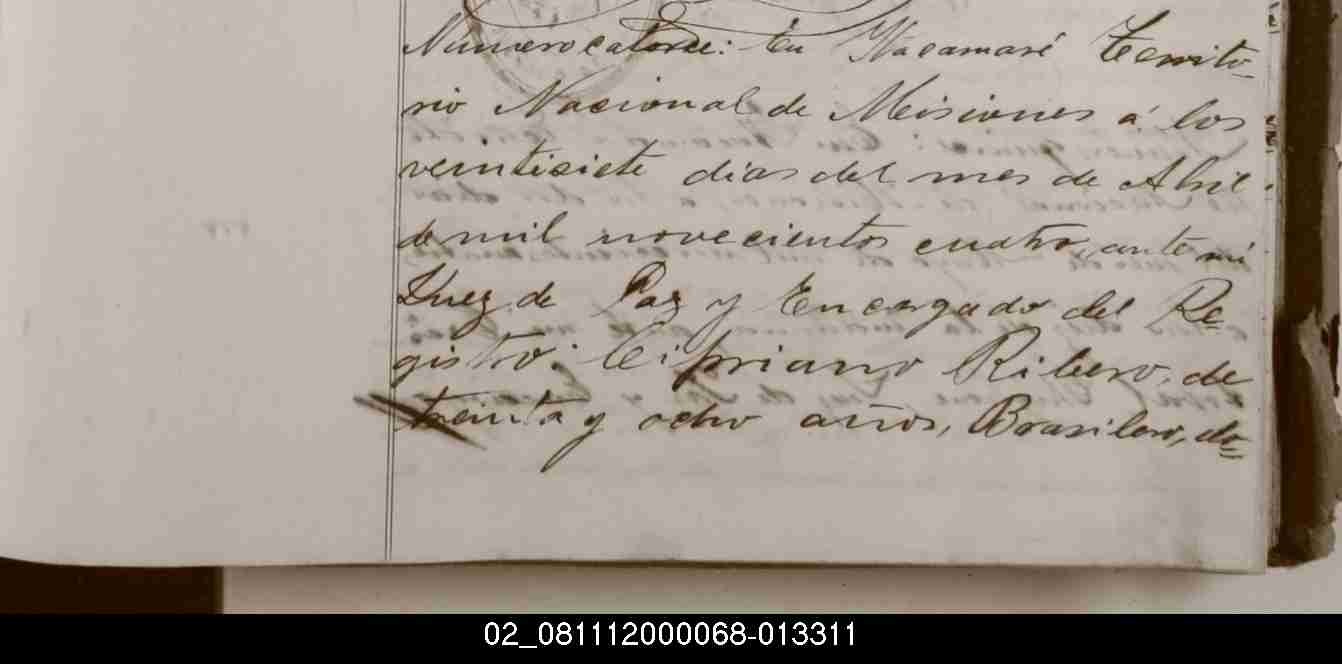 Numero catorce: En Itacamaré Territo-
rio Nacional de Misiones á los
veintisiete dias del mes de Abril
de mil novecientos cuatro, ante mi
Juez de Paz y Encargado del Re-
gistro: Cipriano Ribero, de
treinta y ocho años, Brasilero, do-
02_081112000068-013311